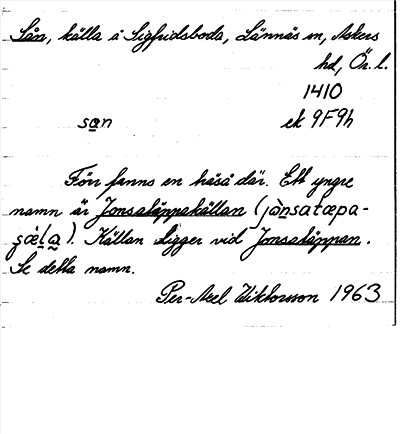 Sån, källa å Sigfridsboda, Lännäs sn, Askers
hd, Ör. l.
1410
san ek 9F9h
Förr fanns en håså där. Ett yngre
namn är Jonsatäppakällan (jànsatæpa-
Källan ligger vid Jonsatäppan.
Se detta namn.
Per-Axel Wiktorsson 1963